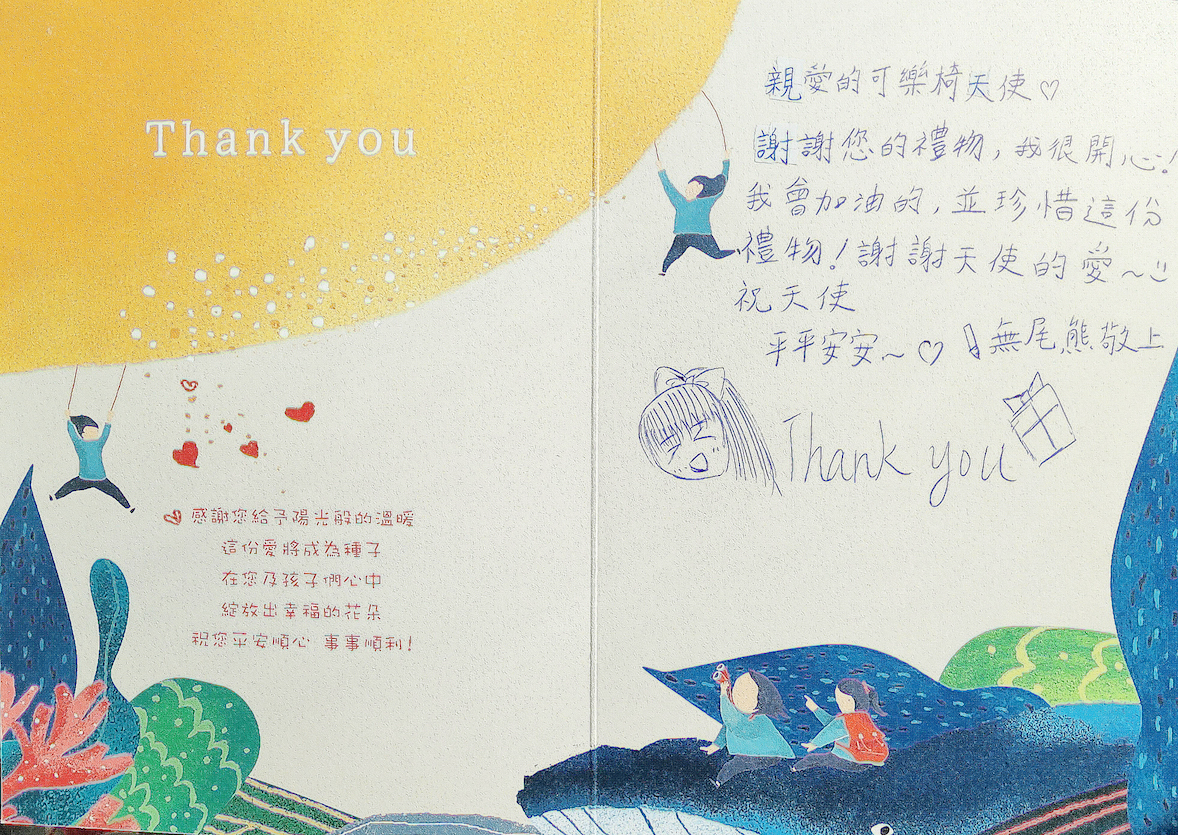 Thank you
感謝您給予陽光般的溫暖
這份愛將成為種子
在您及孩子們心中
綻放出幸福的花朵
祝您平安順心 事事順利!
親愛的可樂椅天使♡
謝謝您的禮物,我很開心!
我會加油的,並珍惜這份
禮物!謝謝天使的愛~
祝天使
平平安安~♡ 無尾熊敬上
Thank you